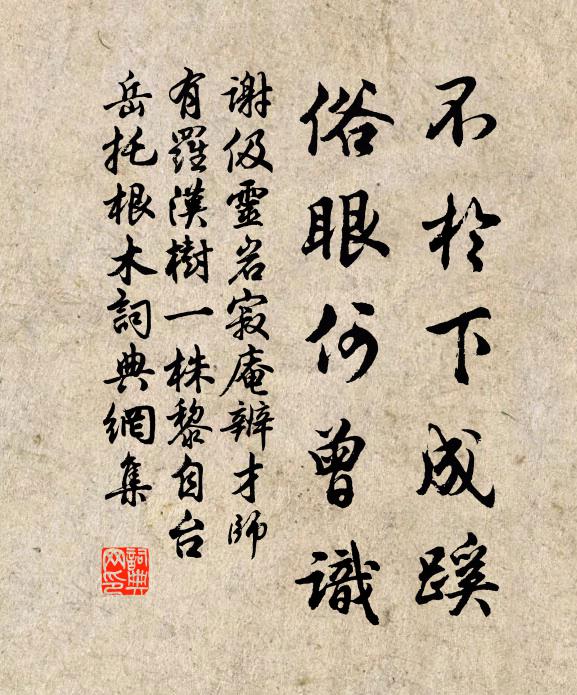 不於下成蹊
俗眼何曾識
謝伋靈岩寂庵辨才師
有羅漢樹一株黎自台
岳托根木詞典網集
詞典网印